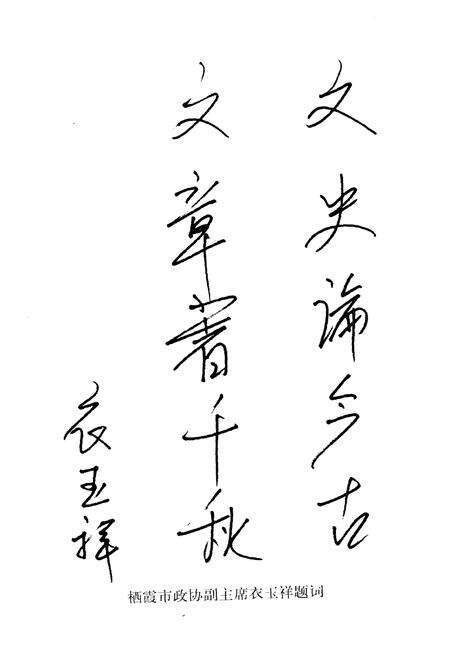 文史論今古
文章著千秋
衣玉祥
栖霞市政协副主席衣玉祥题词